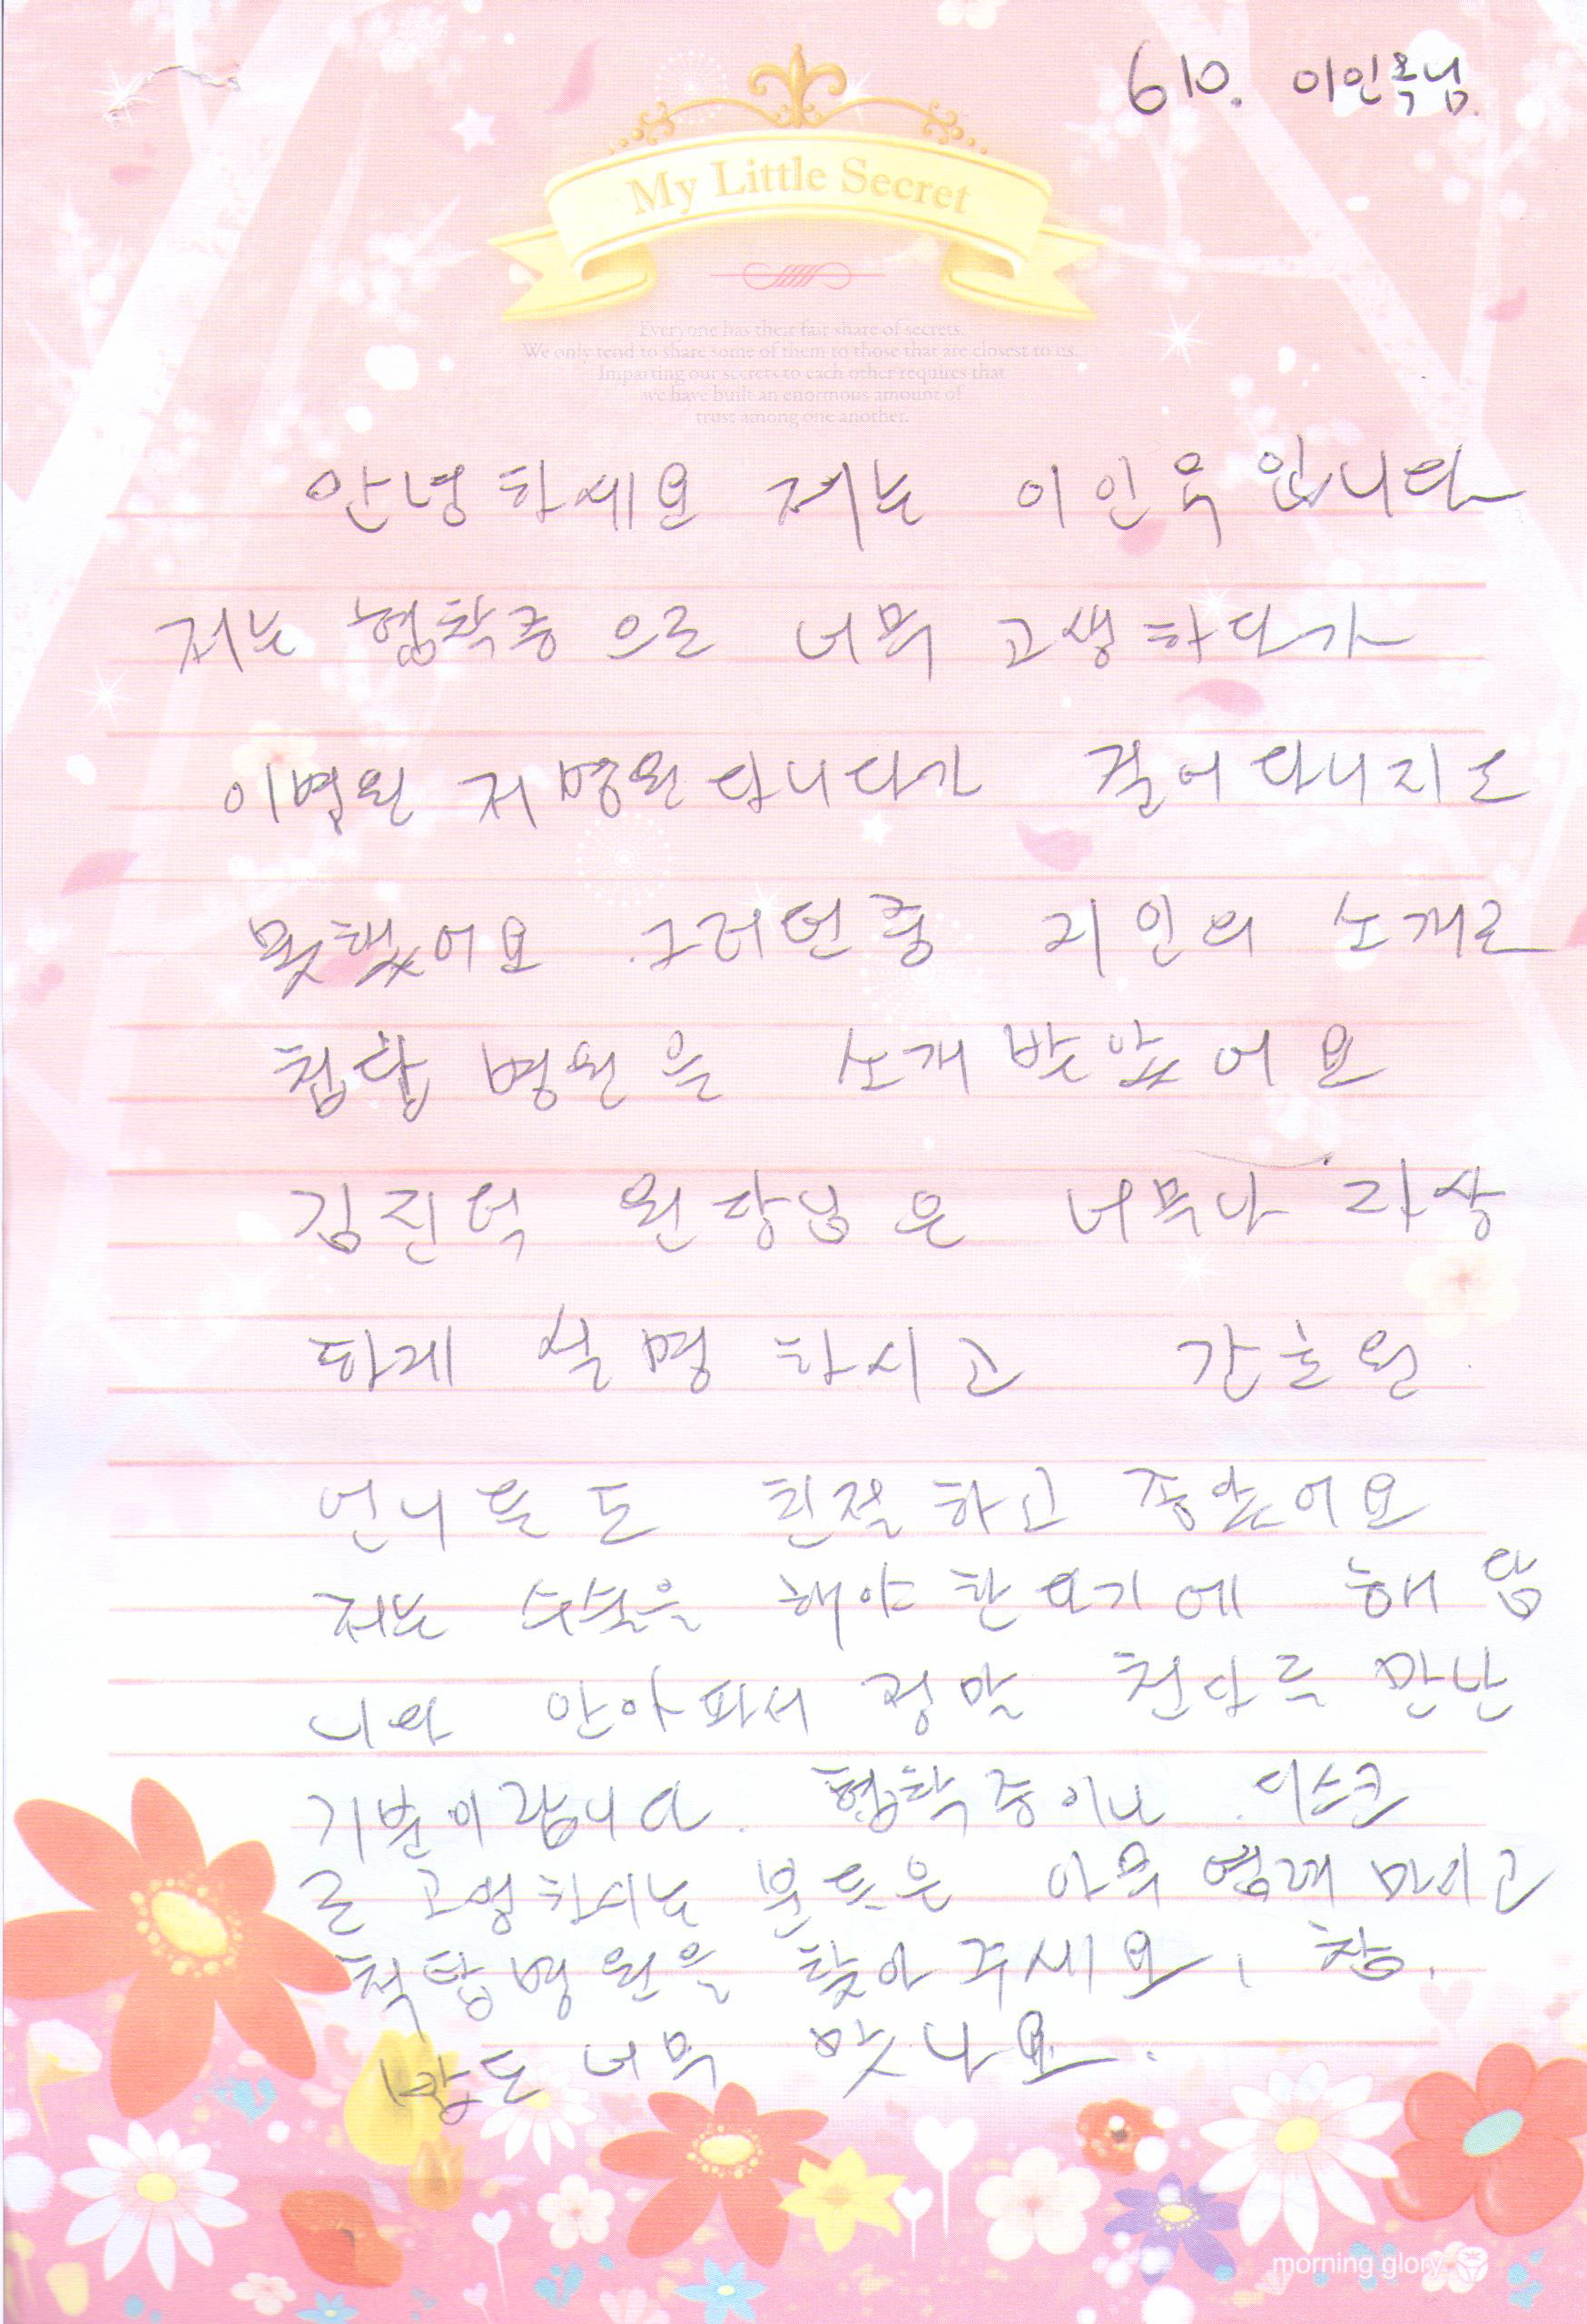 610. 이인옥님.
My Little Secret
Everyone has their fair share of secrets.
We only tend to share some of them to those that are closest to us.
Imparting our secrets to each other requires that
we have built an enormous amount of
trust among one another.
안녕하세요 저는 이인옥 입니다
저는 협착증 으로 너무 고생하다가
이병원 저병원 다니다가 걸어다니지도
못했어요 그러던중 지인의 소개로
첨단 병원을 소개 받았어요
김진덕 원장님은 너무나 자상
하게 설명 하시고 간호원
언니들도 친절하고 좋았어요
저는 수술을 해야 한다기에 해
니와 안아파서 정말 천당을 만난
기분이랍니다. 협착증이나 디스크
로 고생하시는 분들은 아무 염려마시고
척탑병원을 찾아주세요, 참.
밥도 너무 맛나요.
morning glory